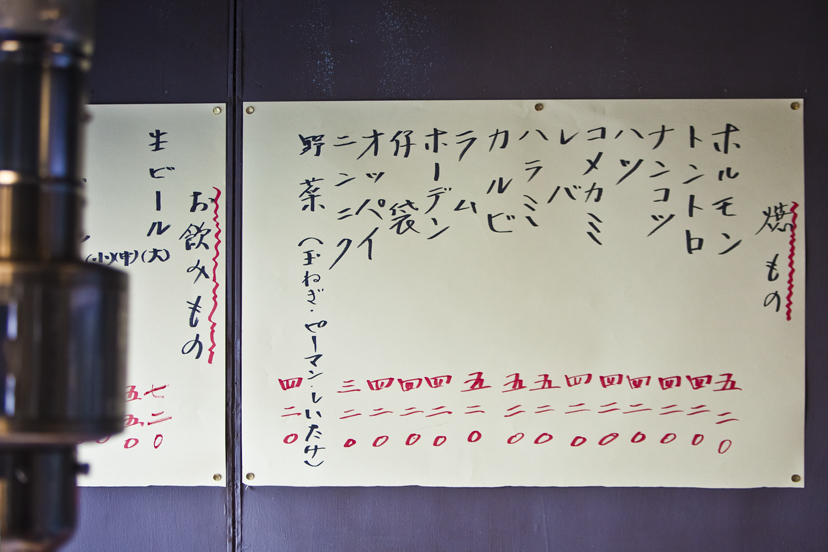 焼もの
ホルモン 五二0
トントロ 四二0
ナンコツ 四二0
ハツ 四二0
コメカミ 四二0
レバ 四二0
ハラミ 五二0
カルビ 五二0
ラム 五二0
ホーデン 四二0
仔袋 四二0
オッパイ 四二0
ニンニク 三二0
野菜(玉ねぎ・ピーマン・しいたけ) 四二0
お飲みもの
生ビール(大) 七二0
(中) 五五0
(小)